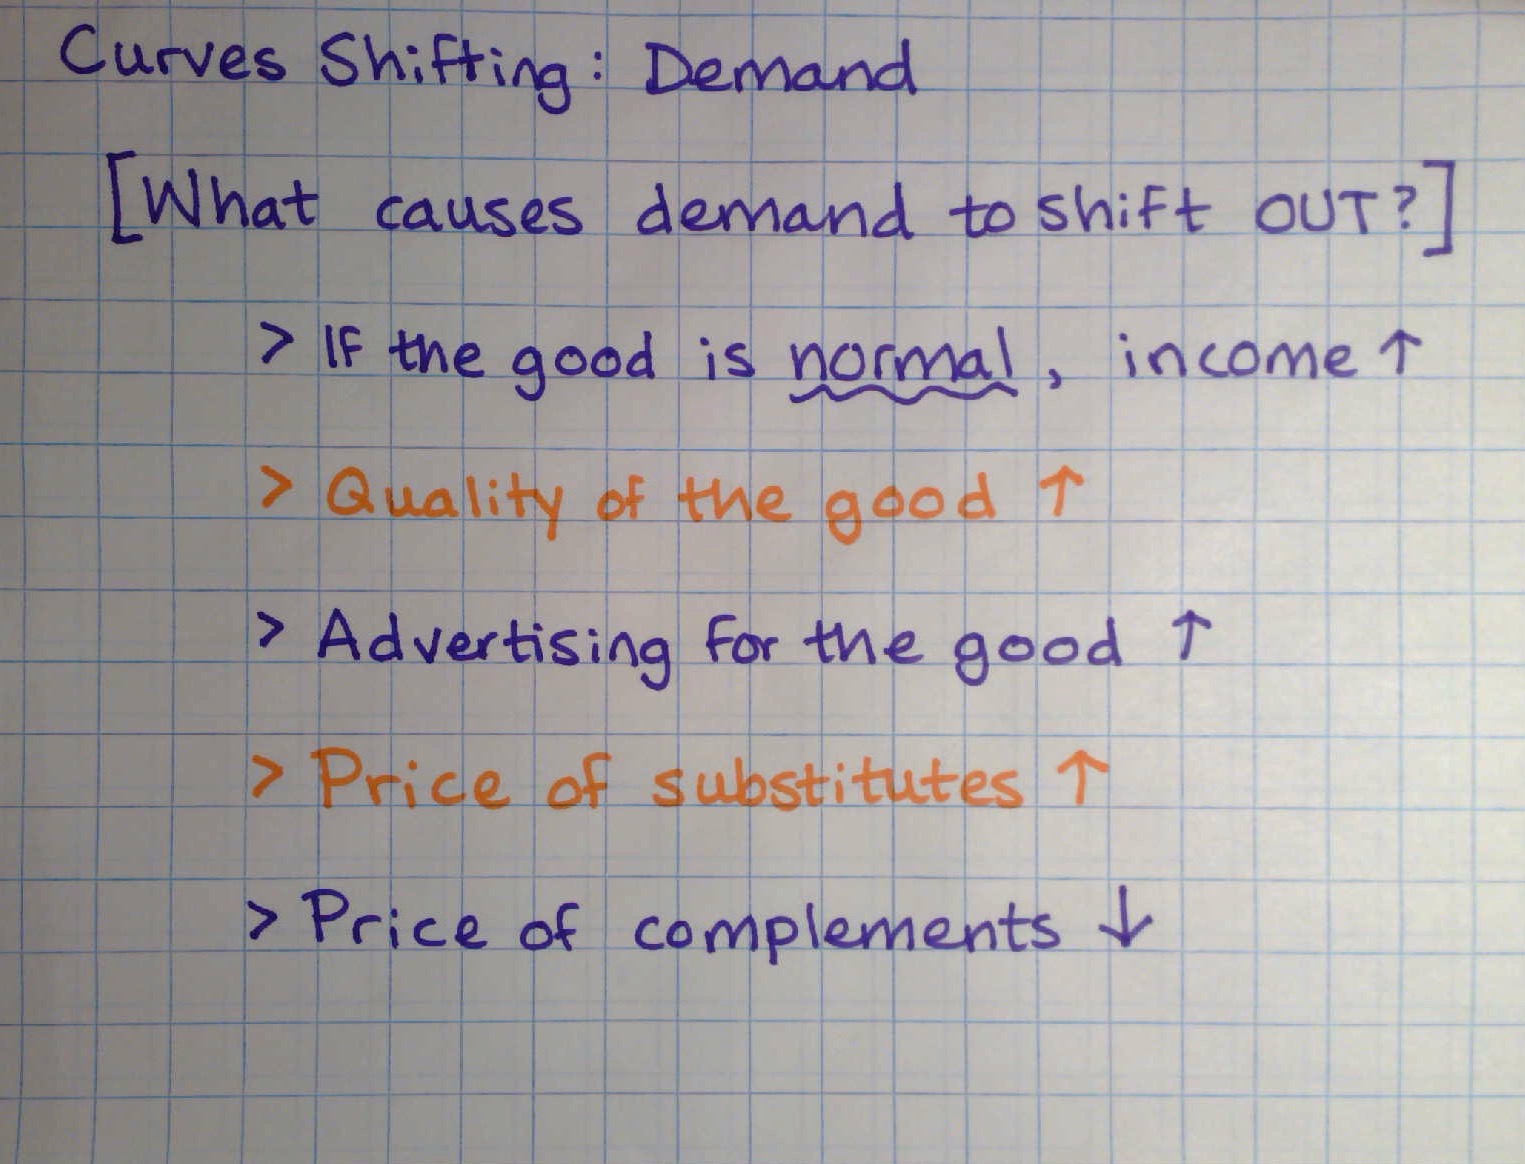 Curves Shifting: Demand
[What causes demand to shift OUT?]
> If the good is normal, income ↑
> Quality of the good ↑
> Advertising for the good ↑
> Price of substitutes ↑
> Price of complements ↓